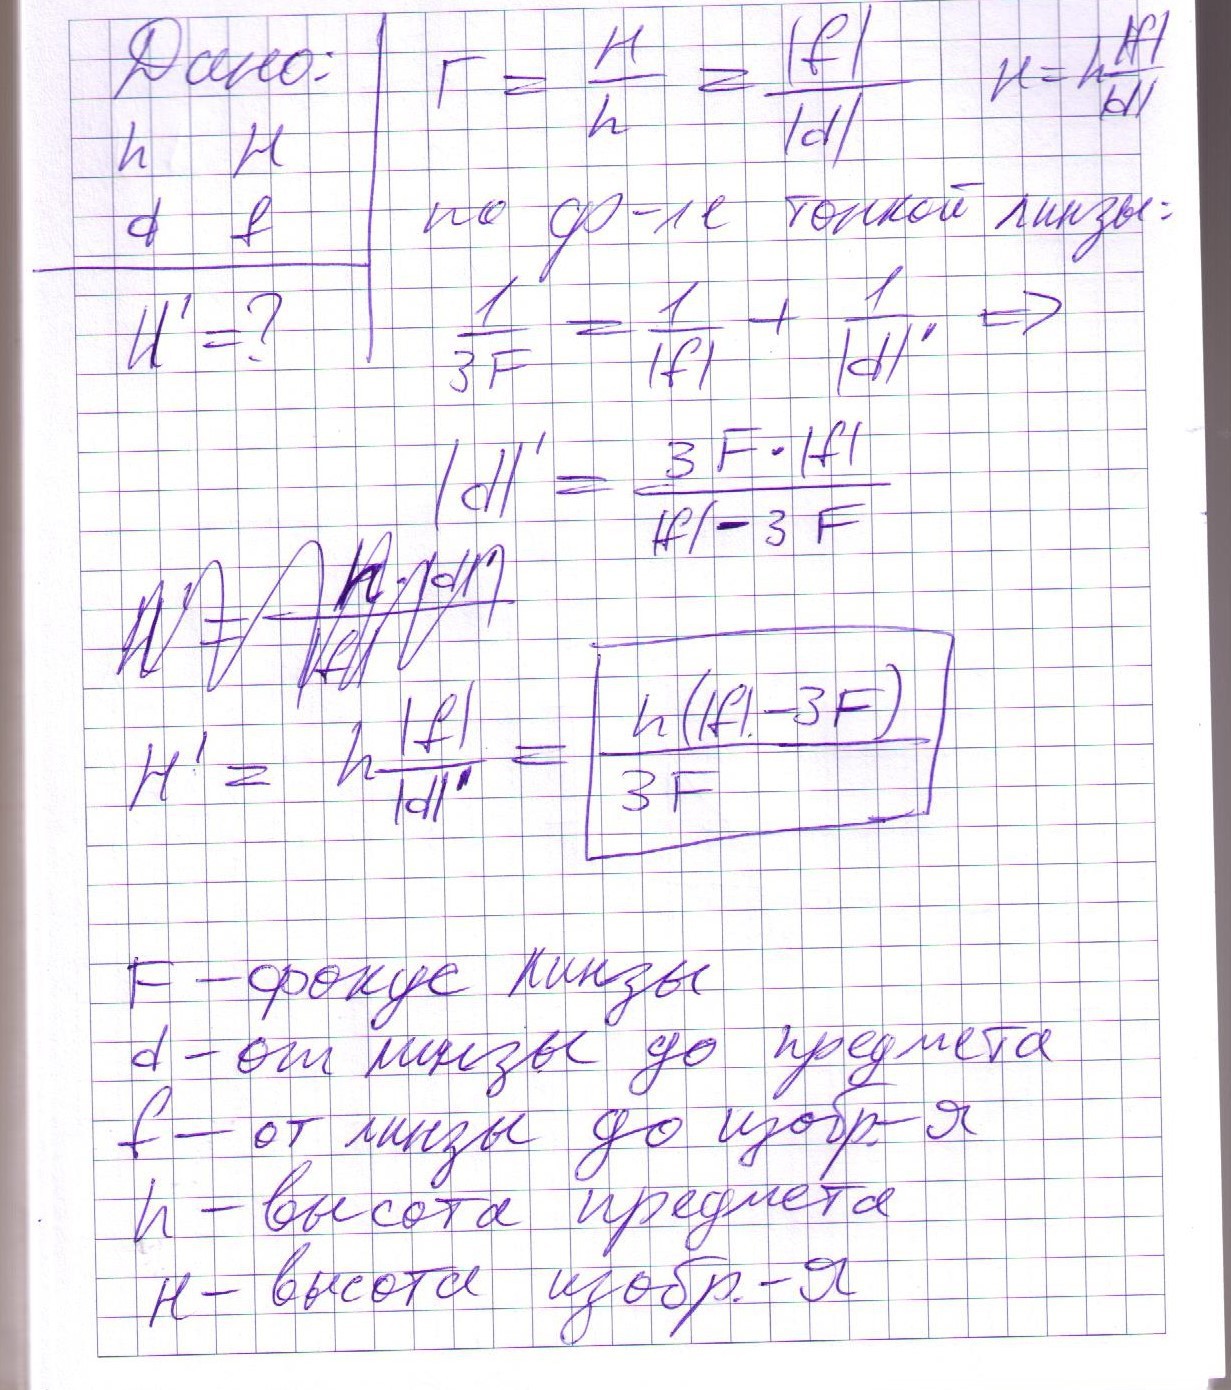 Дано: Γ = H/h = |f|/|d| H = h|f|/|d|
h H
d f по ф-ле тонкой линзы:
H' = ? 1/3F = 1/|f| + 1/|d|' =>
|d|' = 3F·|f|/|f|-3F
H' = h·|d|'/|f|
H' = h|f|/|d|' = h(|f|-3F)/3F
F - фокус линзы
d - от линзы до предмета
f - от линзы до изобр.-я
h - высота предмета
H - высота изобр.-я